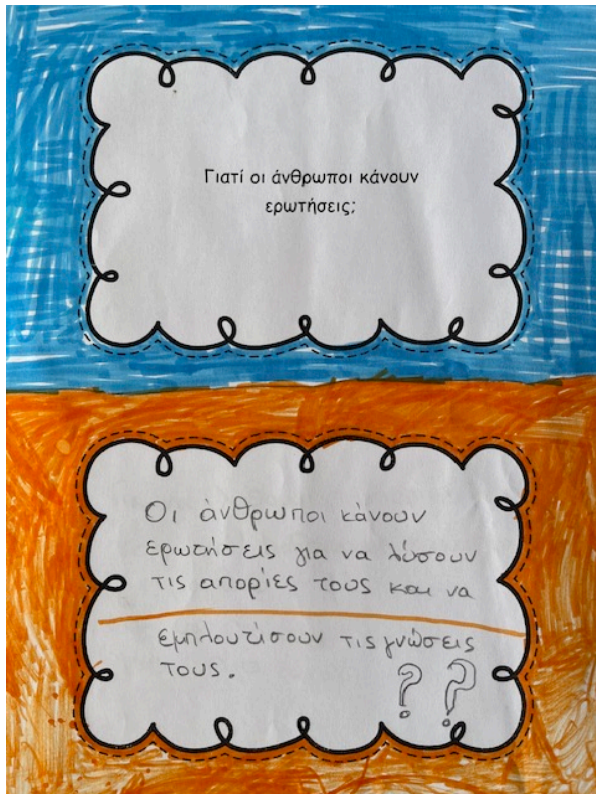 Γιατί οι άνθρωποι κάνουν
ερωτήσεις;
Οι άνθρωποι κάνουν
ερωτήσεις για να λύσουν
τις απορίες τους και να
εμπλουτίσουν τις γνώσεις
τους.
? ?